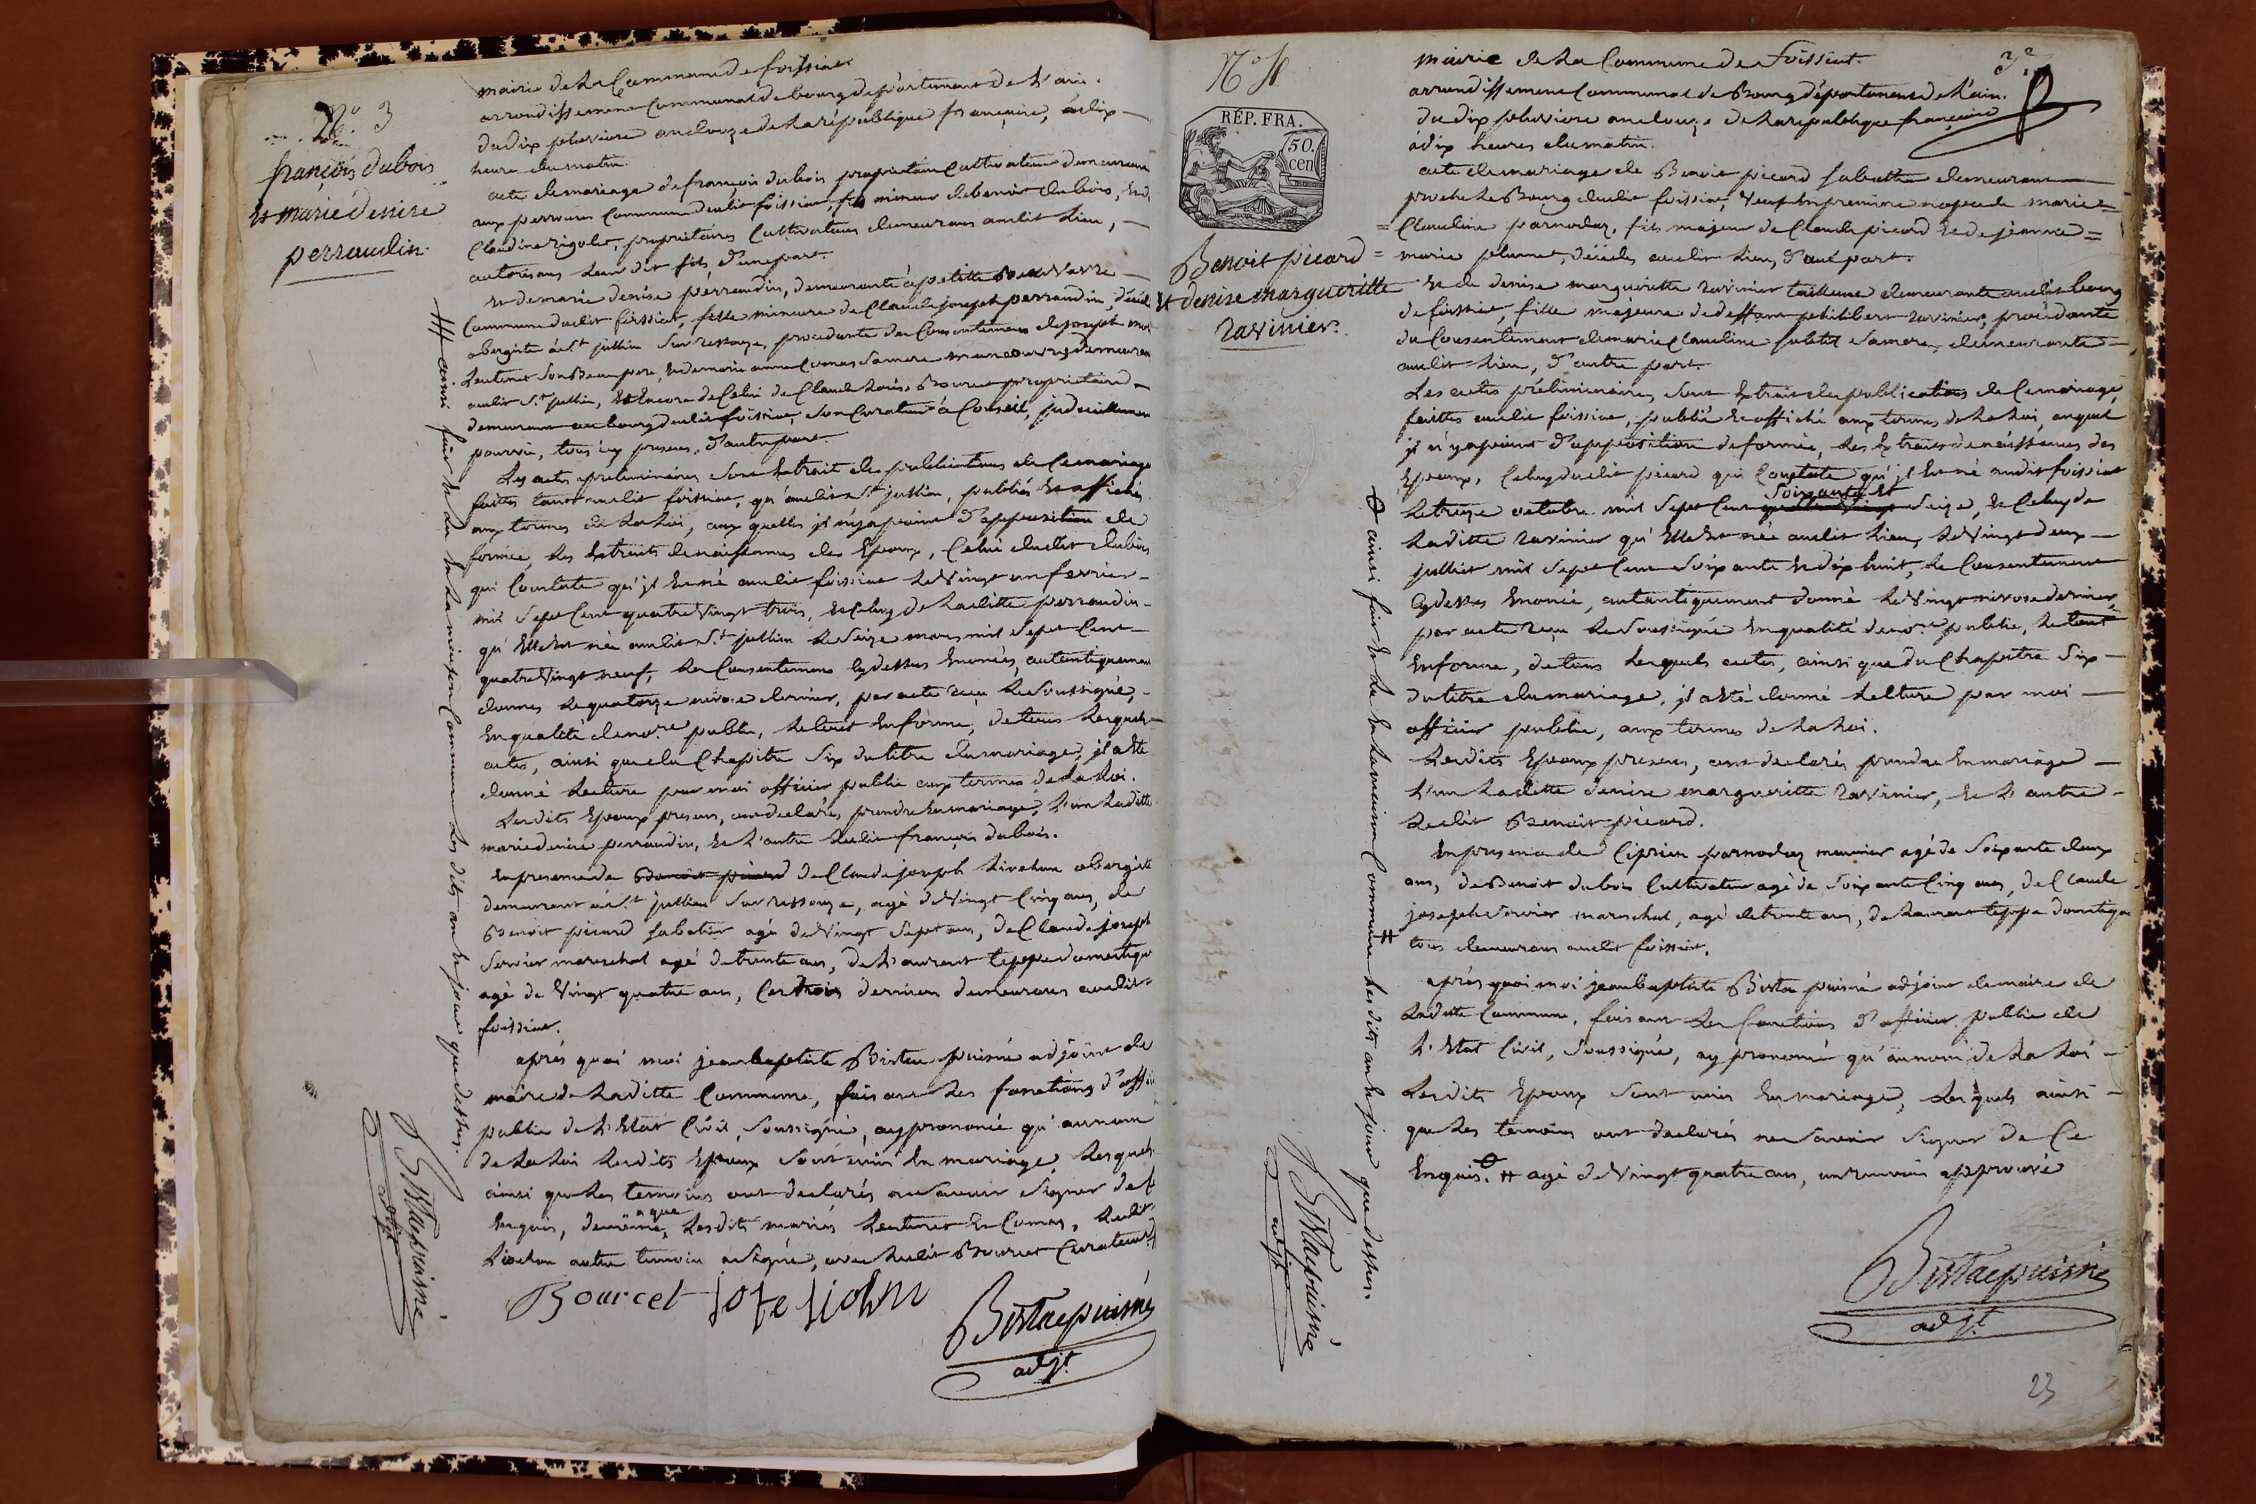 N.o 3
françois dubois
et marie denise
perraudin.
mairie de la Commune de foissiat
arrondissement Communal de bourg département de l'ain.
du dix pluviose an douze de la république française, à dix
heures du matin.
acte de mariage de françois dubois propriétaire Cultivateur demeurant
aux perrouses Commune dudit foissiat, fils mineur de benoit dubois, et de
Claudine rigolet, propriétaires Cultivateurs demeurans audit lieu,
autorisans leur dit fils, d'une part.
et de marie denise perraudin, demeurante à petitte
Commune dudit foissiat, fille mineure de Claude joseph perraudin, décédé
abergiste à St. jullien sur ressouze, procedante du Consentement de joseph
Leutenet son beau pere, et de marie anne Comas sa mere demeurans
audit St. jullien, et encore de Celui de Claude Bourcet propriétaire
demeurant au bourg dudit foissiat, son Curateur à Conseil, judiciellement
pourvu, tous icy presens, d'autre part.
Les actes preliminaires sont extrait des publications de Ce mariage
faittes tant audit foissiat, qu'audit St. jullien, publiés et affichés
aux termes de la loi, aux quelles il n'y a point d'opposition de
formée, les extraits de naissances des Epoux, Celui dudit dubois
qui Constate qu'il est né audit foissiat le vingt un fevrier
mil sept Cent quatre vingt trois, et Celuy de laditte perraudin
qu'elle est née audit St. jullien le seize mars mil sept Cent
quatre vingt neuf, les Consentemens cydessus enoncés, autentiquement
donnés le quatorze nivose dernier, par acte reçu le soussigné,
en qualité de nore. public, le tout en forme, de tous lesquels
actes, ainsi que du Chapitre six du titre du mariage, il a eté
donné lecture par moi officier public aux termes de la loi.
Lesdits Epoux presens, ont declarés prendre en mariage, l'un laditte
marie denise perraudin, et l'autre ledit françois dubois.
En presence de benoit picard de Claude joseph Liochon abergiste
demeurant à St. jullien sur ressouze, agé de vingt Cinq ans, de
Benoit picard sabotier agé de vingt sept ans, de Claude joseph
Servier mareschal agé de trente ans, de Laurent teppe domestique
agé de vingt quatre ans, Ces trois derniers demeurans audit
foissiat.
après quoi moi jean baptiste Bistac puisné adjoint de
maire de laditte Commune, faisant les fonctions d'officier
public de l'Etat Civil, soussigné, ay prononcé qu'au nom
de la loi lesdits Epoux sont unis en mariage, lesquels
ainsi que les temoins ont declarés ne savoir signer de ce
enquis, de même que lesdits mariés Leutenet et Comas, ledit
Liochon autre temoin a signé, avec ledit Bourcet Curateur
Bourcet
Bistac puisné
adjt.
# ainsi fait et lu en la maison Commune les dits an et jour que dessus.
Bistac puisné
adjt.
N.o 4
RÉP. FRA.
50.
cen
Benoit picard
et denise margueritte
ravinier.
mairie de la Commune de Foissiat.
arrondissement Communal de Bourg département de l'ain.
du dix pluviose an douze de la republique française
à dix heures du matin.
acte de mariage de Benoit picard sabottier demeurant
proche le Bourg dudit foissiat, veuf en premiere nopce de marie
Claudine parnodaz, fils majeur de Claude picard et de jeanne
marie plumet, décédés audit lieu, d'une part.
et de denise margueritte ravinier tailleuse demeurante audit bourg
de foissiat, fille majeure de deffunt philibert ravinier, procedante
du Consentement de marie Claudine sublet sa mere, demeurante
audit lieu, d'autre part.
Les actes préliminaires, sont extrait des publications de Ce mariage,
faittes audit foissiat, publié et affiché aux termes de la loi, auquel
il n'y a point d'opposition de formée, les extraits de naissances des
Epoux, Celuy dudit picard qui Constate qu'il est né audit foissiat
le treize octobre mil sept Cent quatre vingt soixante et seize, et Celuy de
laditte ravinier qu'elle est née audit lieu, le vingt deux
juillet mil sept Cent soixante et dix huit, le Consentement
cydessus enoncé, autentiquement donné le vingt nivose dernier,
par acte reçu le soussigné en qualité de nore. public, le tout
en forme, de tous lesquels actes, ainsi que du Chapitre six
du titre du mariage, il a été donné lecture par moi
officier public, aux termes de la loi.
Lesdits Epoux presens, ont declarés prendre en mariage
l'un laditte denise margueritte ravinier, et l'autre
ledit Benoit picard.
En presence de Ciprien parnodaz meunier agé de soixante deux
ans, de Benoit dubois Cultivateur agé de soixante Cinq ans, de Claude
joseph Servier mareschal, agé de trente ans, de Laurent teppe domestique #
tous demeurans audit foissiat.
après quoi moi jean baptiste Bistac puisné adjoint de maire de
laditte Commune, faisant les fonctions d'officier public de
l'Etat Civil, soussigné, ay prononcé qu'au nom de la loi
lesdits Epoux sont unis en mariage, lesquels ainsi
que les temoins ont declarés ne savoir signer de Ce
enquis. # agé de vingt quatre ans, un renvoi approuvé
Bistac puisné
adjt.
ainsi fait et lu en la maison Commune lesdits an et jour que dessus.
Bistac puisné
adjt.
23